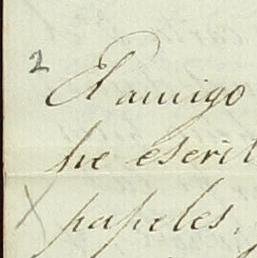 2
El amigo
he escrit
papeles,